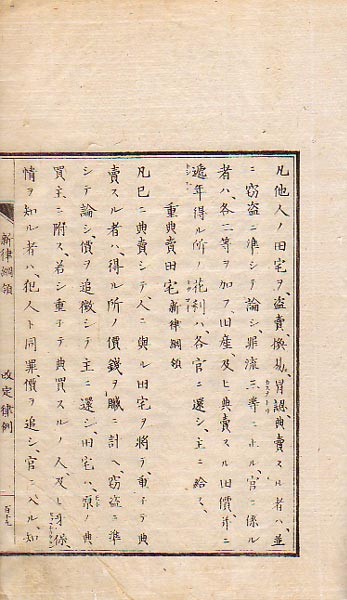 凡他人ノ田宅ヲ、盗賣、換易、冒認、典賣スル者ハ、並
ニ窃盗ニ準シテ論シ、罪流三等ニ止ル、官ニ係ル
者ハ、各二等ヲ加フ、旧産、及ヒ典賣スル旧價、并ニ
逓年得ル所ノ花利ハ、各官ニ還シ、主ニ給ス、
重典賣田宅 新律綱領
凡已ニ典賣シテ、人ニ與ル田宅ヲ將テ、重子テ典
賣スル者ハ、得ル所ノ價錢ヲ贓ニ計ヘ、窃盗ニ準
シテ論シ、價ヲ追徴シテ主ニ還シ、田宅ハ、原ノ典
買主ニ附ス、若シ重子テ典買スルノ人、及ヒ牙保、
情ヲ知ル者ハ、犯人ト同罪、價ヲ追シ、官ニ入ル、知
新律綱領 改定律例